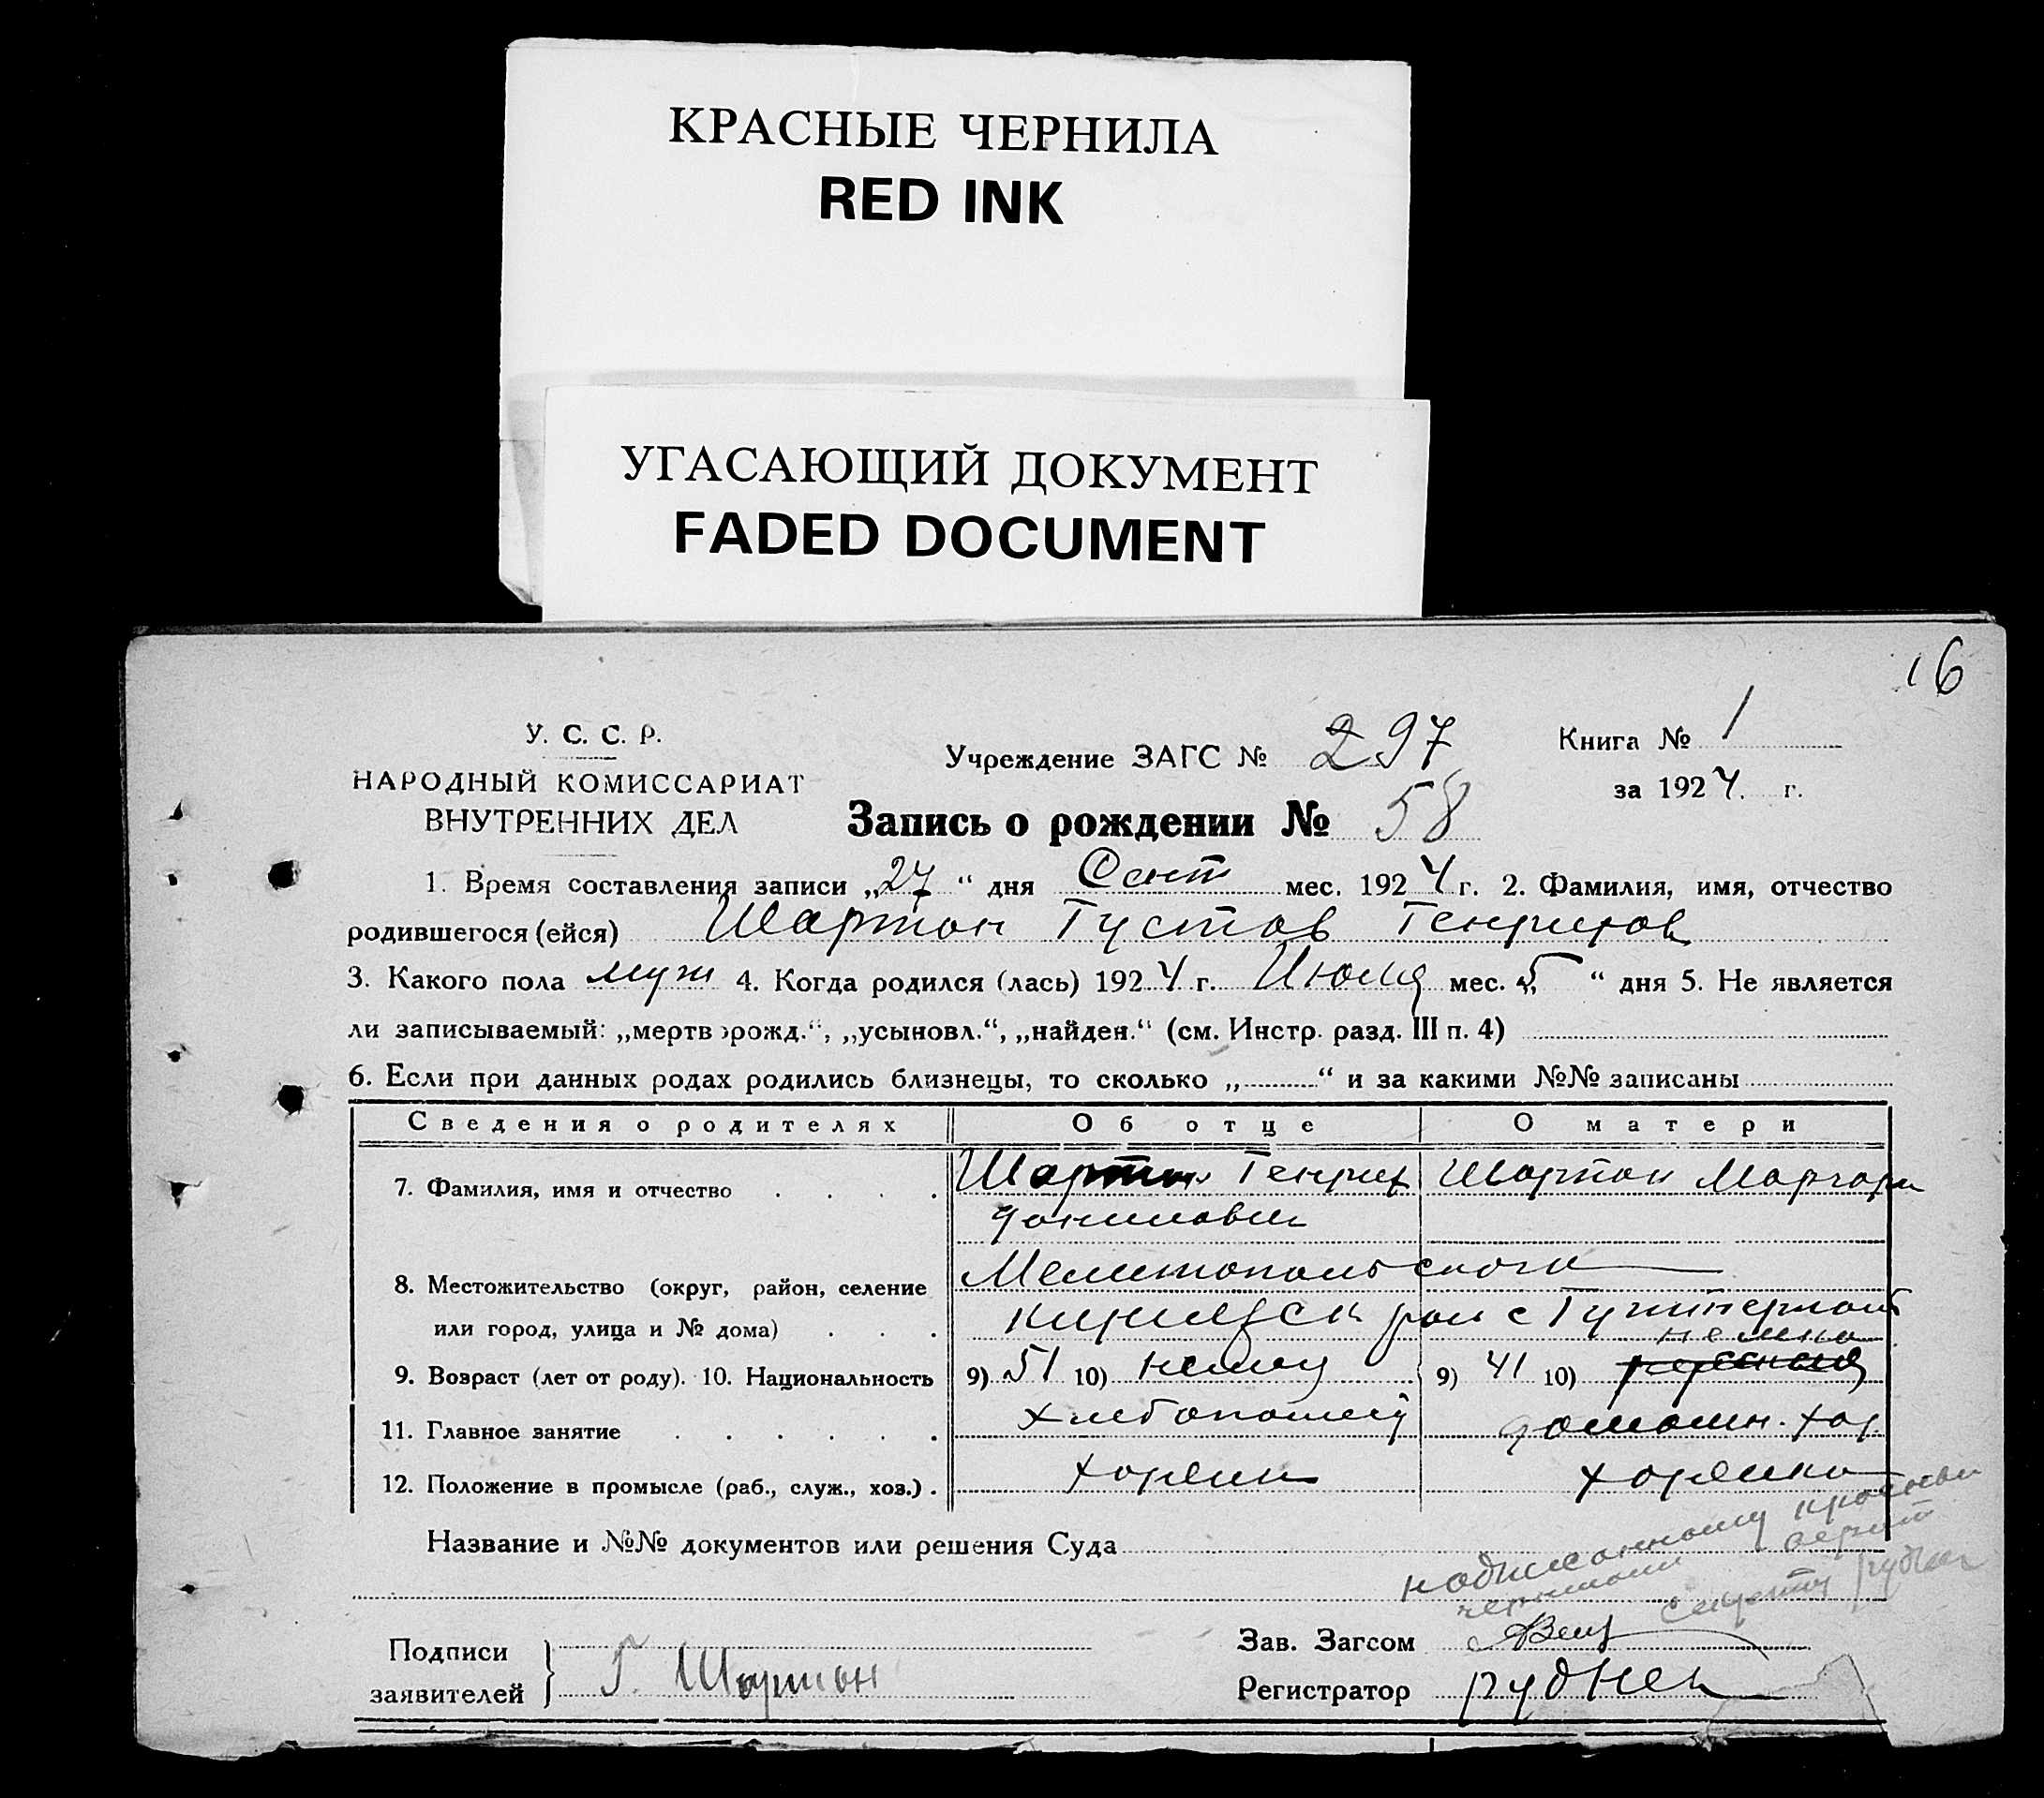 КРАСНЫЕ ЧЕРНИЛА
RED INK
УГАСАЮЩИЙ ДОКУМЕНТ
FADED DOCUMENT
16
У. С. С. Р.
НАРОДНЫЙ КОМИССАРИАТ
ВНУТРЕННИХ ДЕЛ
Учреждение ЗАГС № 297
Книга № 1
за 1924 г.
Запись о рождении № 58
1. Время составления записи „27“ дня Сент мес. 1924 г. 2. Фамилия, имя, отчество
родившегося (ейся) Шартон Густав Генрихов
3. Какого пола муж 4. Когда родился (лась) 1924 г. Июля мес. „5“ дня 5. Не является
ли записываемый: „мертворожд.“, „усыновл.“, „найден.“ (см. Инстр. разд. III п. 4)
6. Если при данных родах родились близнецы, то сколько „ “ и за какими №№ записаны
Сведения о родителях Об отце О матери
7. Фамилия, имя и отчество Шартон Генрих Шартон Маргари
Данилович
8. Местожительство (округ, район, селение Мелитопольского
или город, улица и № дома) рай с
немка
9. Возраст (лет от роду). 10. Национальность 9) 51 10) немец 9) 41 10)
11. Главное занятие хлебопашец домашн. хоз.
12. Положение в промысле (раб., служ., хоз.) хозяин хозяйка
Название и №№ документов или решения Суда
надписанному красными
чернилами верит
Подписи
заявителей Г. Шартон
Зав. Загсом
Регистратор Руднев